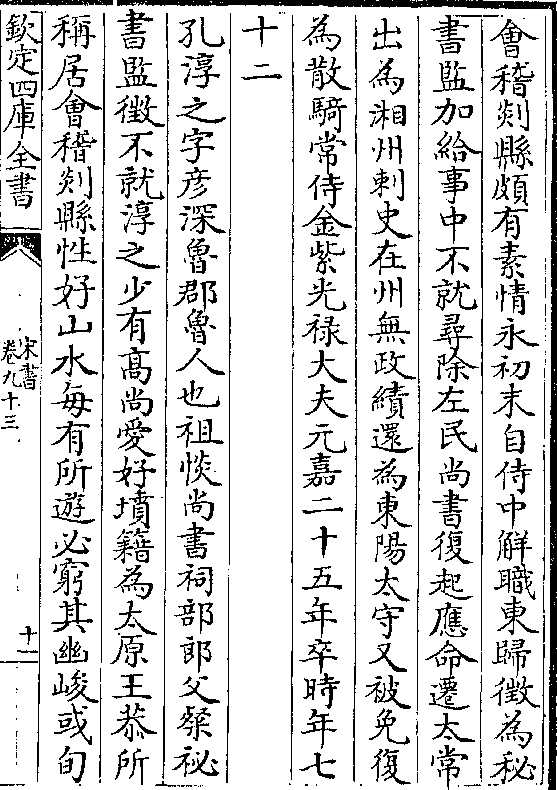 會稽剡縣頗有素情永初末自侍中解職東歸徴為秘
書監加給事中不就尋除左民尚書復起應命遷太常
出為湘州刺史在州無政績還為東陽太守又被免復
為散騎常侍金紫光禄大夫元嘉二十五年卒時年七
十二
孔淳之字彦深魯郡魯人也祖惔尚書祠部郎父粲祕
書監徴不就淳之少有髙尚愛好墳籍為太原王恭所
稱居會稽剡縣性好山水每有所遊必窮其幽峻或旬
欽定四庫全書
宋書
卷九十三
十一